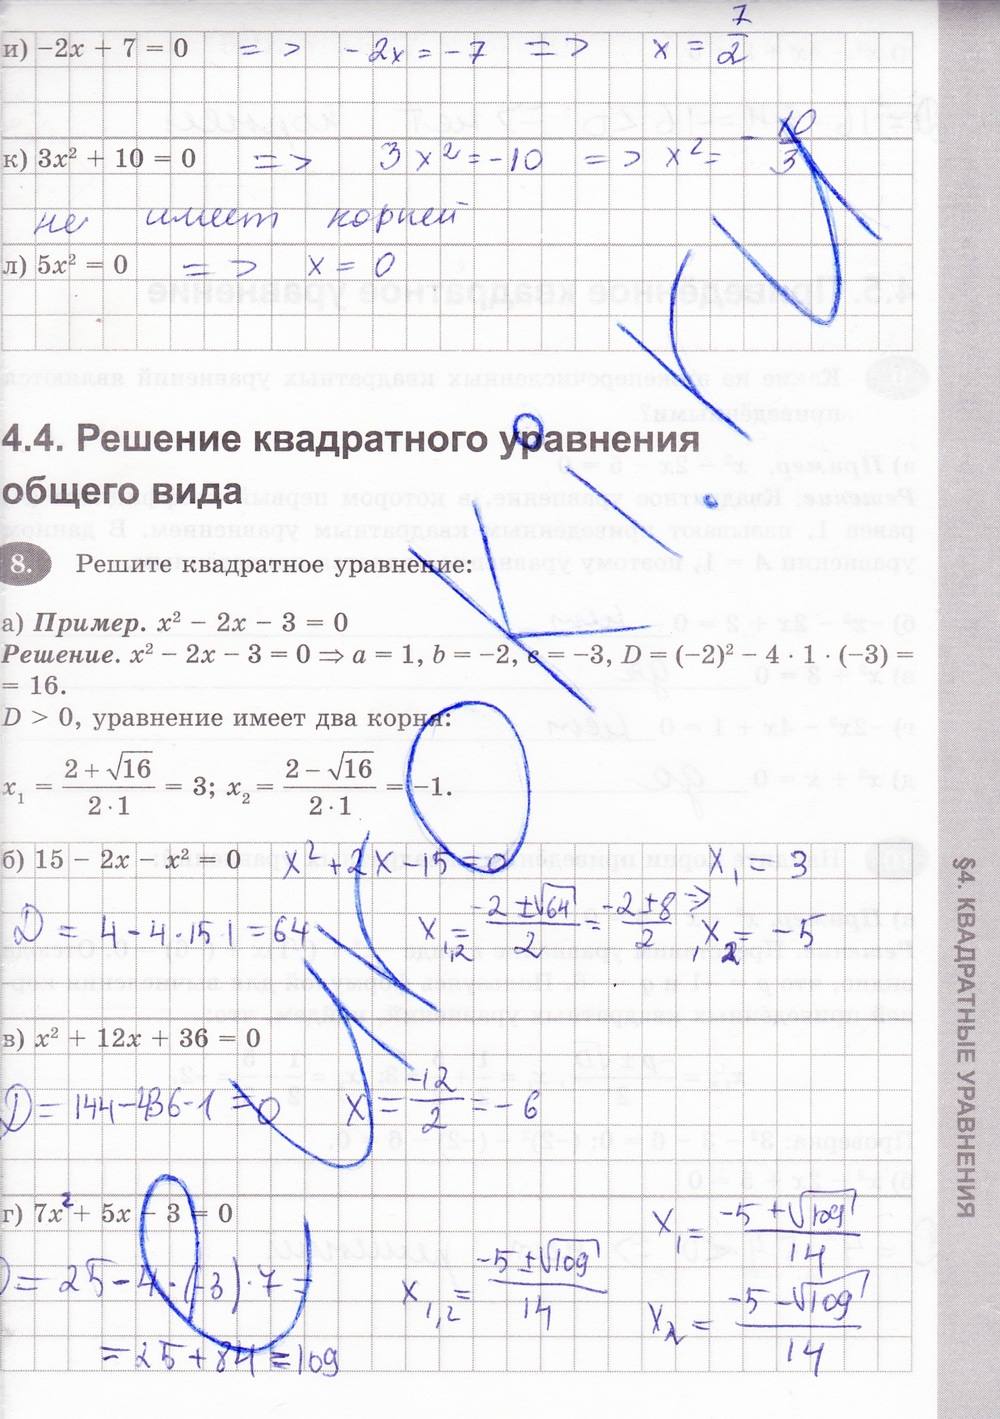 и) −2x + 7 = 0 => -2x = -7 => x = 7/2
к) 3x² + 10 = 0 => 3x² = -10 => x² = -10/3
не имеет корней
л) 5x² = 0 => x = 0
4.4. Решение квадратного уравнения
общего вида
8. Решите квадратное уравнение:
а) Пример. x² − 2x − 3 = 0
Решение. x² − 2x − 3 = 0 ⇒ a = 1, b = −2, c = −3, D = (−2)² − 4 · 1 · (−3) =
= 16.
D > 0, уравнение имеет два корня:
x₁ = (2 + √16)/(2 · 1) = 3; x₂ = (2 − √16)/(2 · 1) = −1.
б) 15 − 2x − x² = 0 x² + 2x - 15 = 0 x₁ = 3
D = 4 - 4·15·1 = 64 x₁,₂ = (-2 ± √64)/2 = (-2 ± 8)/2 => , x₂ = -5
в) x² + 12x + 36 = 0
D = 144 - 4·36·1 = 0 x = -12/2 = -6
г) 7x² + 5x − 3 = 0 x₁ = (-5 + √109)/14
D = 25 - 4·(-3)·7 = x₁,₂ = (-5 ± √109)/14 x₂ = (-5 - √109)/14
= 25 + 84 = 109
§4. КВАДРАТНЫЕ УРАВНЕНИЯ